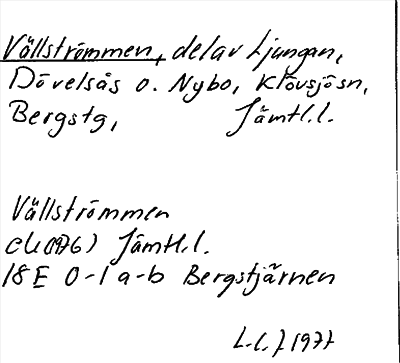 Vällströmmen, del av Ljungan,
Dövelsås o. Nybo, Klövsjösn,
Bergstg, Jämtl.l.
Vällströmmen
ck (1976) Jämtl.l.
18 E 0-1 a-b Bergstjärnen
L.C.J 1977